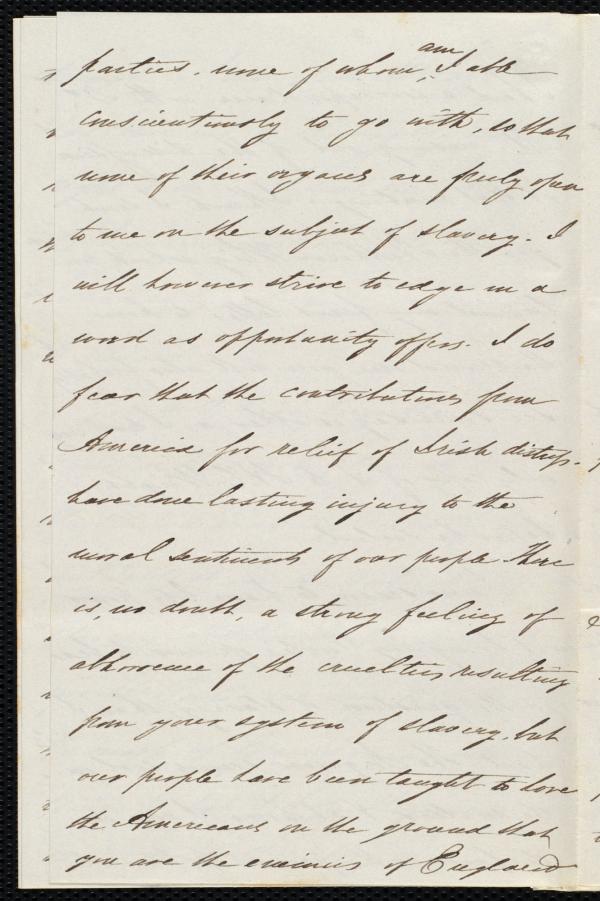 parties, none of whom, am I able
conscientiously to go with, so that
none of their organs are freely open
to me on the subject of slavery. I
will however strive to edge in a
word as opportunity offers. I do
fear that the contributions from
America for relief of Irish distress
have done lasting injury to the
moral sentiments of our people. There
is, no doubt, a strong feeling of
abhorrence of the cruelties resulting
from your system of slavery, but
our people have been taught to love
the Americans on the ground that
you are the enemies of England